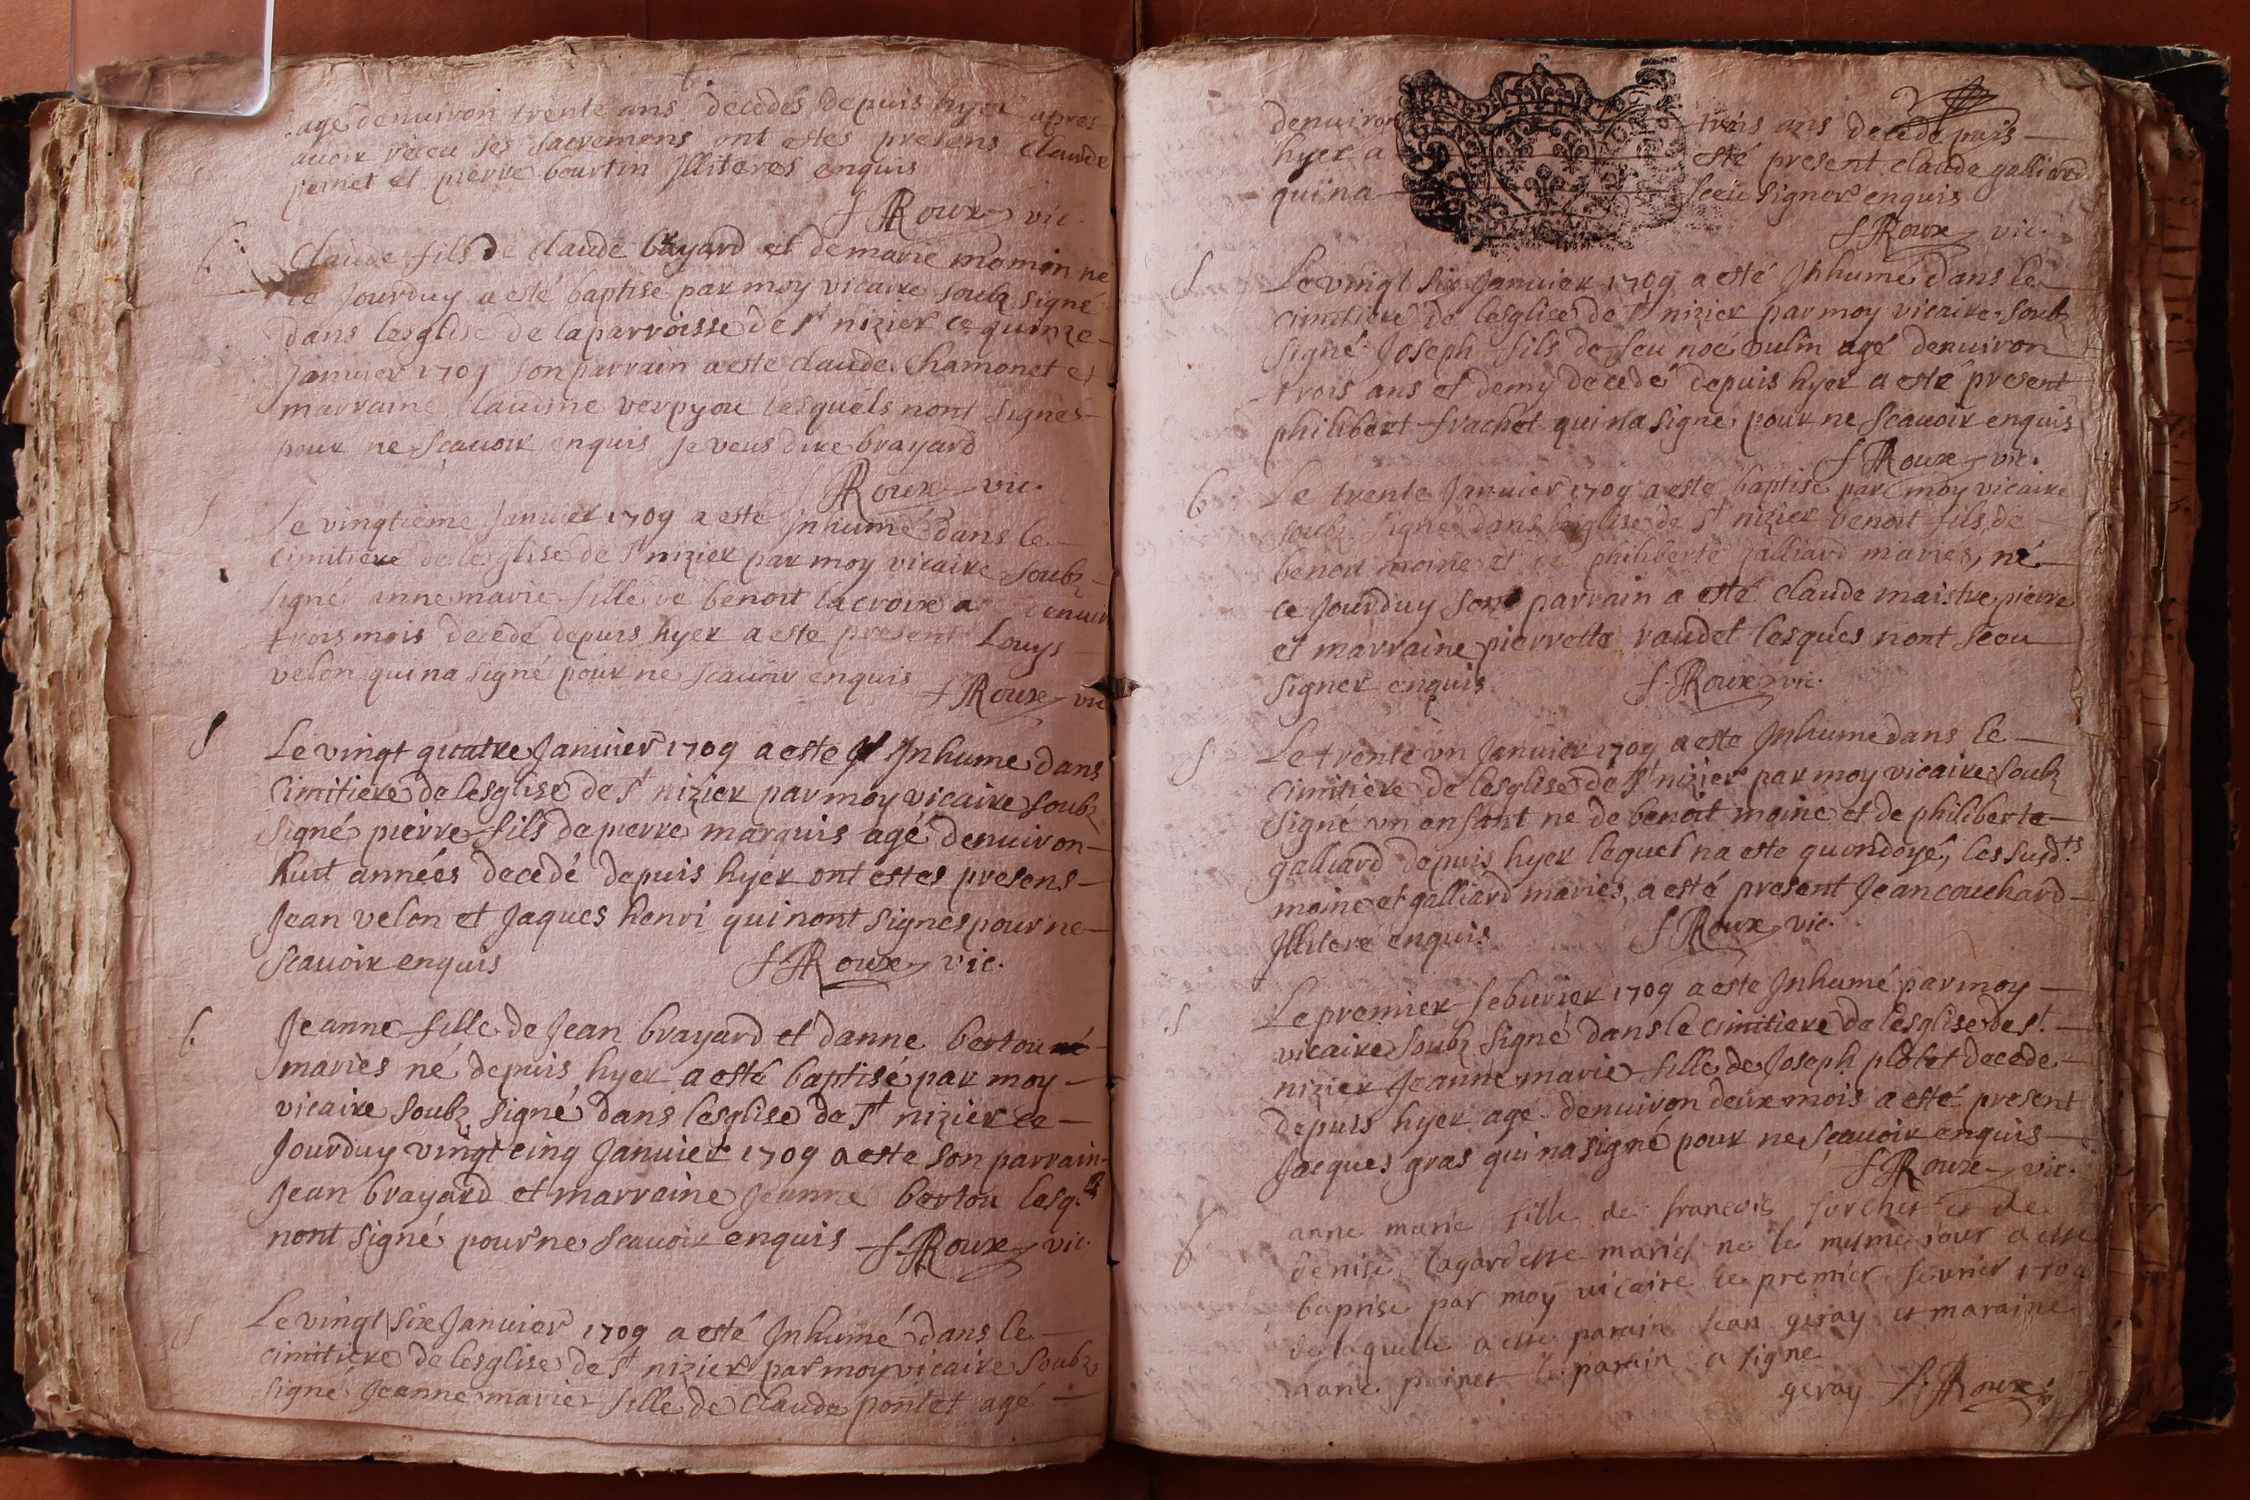 agé denuiron trente ans decedés depuis hyer apres
auoir receu ses sacremens ont estes presens claude
pernet et pierre bourtin Illiteres enquis
f Roux vic.
b.
Claude fils de claude brayard et de marie momin ne
ce Jourduy a esté baptisé par moy vicaire soubz signé
dans lesglise de la parroisse de st nizier ce quinze
Januier 1709 son parrain a este claude Chamonet et
marraine claudine verpyou lesquels nont signés
pour ne scauoir enquis je veus dire brayard
f Roux vic.
S
Le vingtiéme Januier 1709 a este Inhumé dans le
cimitiere de lesglise de st nizier par moy vicaire soubz
signé anne marie fille de benoit lacroix a denuir
trois mois decedé depuis hyer a este present Louys
velon qui na signé pour ne scauoir enquis
f Roux vic
S
Le vingt quatre Januier 1709 a este Inhume dans
Cimitiere de lesglise de st nizier par moy vicaire soubz
signé pierre fils de pierre marquis agé denuiron
huit années decedé depuis hyer ont estes presens
Jean velon et Jaques henri qui nont signes pour ne
scauoir enquis f Roux vic.
b.
Jeanne fille de Jean brayard et danne bertou
mariés né depuis hyer a esté baptisé par moy
vicaire soubz signé dans lesglise de st nizier ce
Jourduy vingt cinq Januier 1709 a este son parrain
Jean brayard et marraine Jeanne bertou lesq.
nont signé pour ne scauoir enquis f Roux vic.
S
Le vingt six Januier 1709 a esté Inhumé dans le
cimitiere de lesglise de st nizier par moy vicaire soubz
signé Jeanne marie fille de Claude pontet agé
denuiron trois ans decedé puis
hyer a esté present claude galliard
qui na sceu signer enquis
f Roux vic.
S
Le vingt six Januier 1709 a esté Inhumé dans le
cimitiere de lesglise de st nizier par moy vicaire soubz
signé Joseph fils de feu noé vulin agé denuiron
trois ans et demy decedé depuis hyer a esté present
philibert frachet qui na signé pour ne scauoir enquis
f Roux vic.
b
Le trente Januier 1709 a este baptisé par moy vicaire
soubz signé dans lesglise de st nizier benoit fils de
benoit moine et de philiberte galliard mariés, né
ce Jourduy son parrain a esté claude maistre pierre
et marraine pierrette raudet lesques nont sceu
signer enquis f Roux vic.
S
Le trente vn Januier 1709 a este Inhume dans le
cimitiere de lesglise de st nizier par moy vicaire soubz
signé vn enfant ne de benoit moine et de philiberte
galliard depuis hyer lequel na este quondoyé, les susd.ts
moine et galliard mariés, a esté present Jean couchard
Illiteré enquis f Roux vic.
S
Le premier feburier 1709 a este Inhumé par moy
vicaire soubz signé dans le cimitiere de lesglise de st
nizier Jeanne marie fille de Joseph plotet decede
depuis hyer agé denuiron deux mois a esté present
Jacques gras qui na signé pour ne scauoir enquis
f Roux vic.
anne marie fille de francois forchet et de
denise lagardette mariés ne le mesme jour a este
baptise par moy vicaire le premier feurier 1709
de laquelle a este parain Jean geray et maraine
marie poinet le parain a signe
geray f. Roux